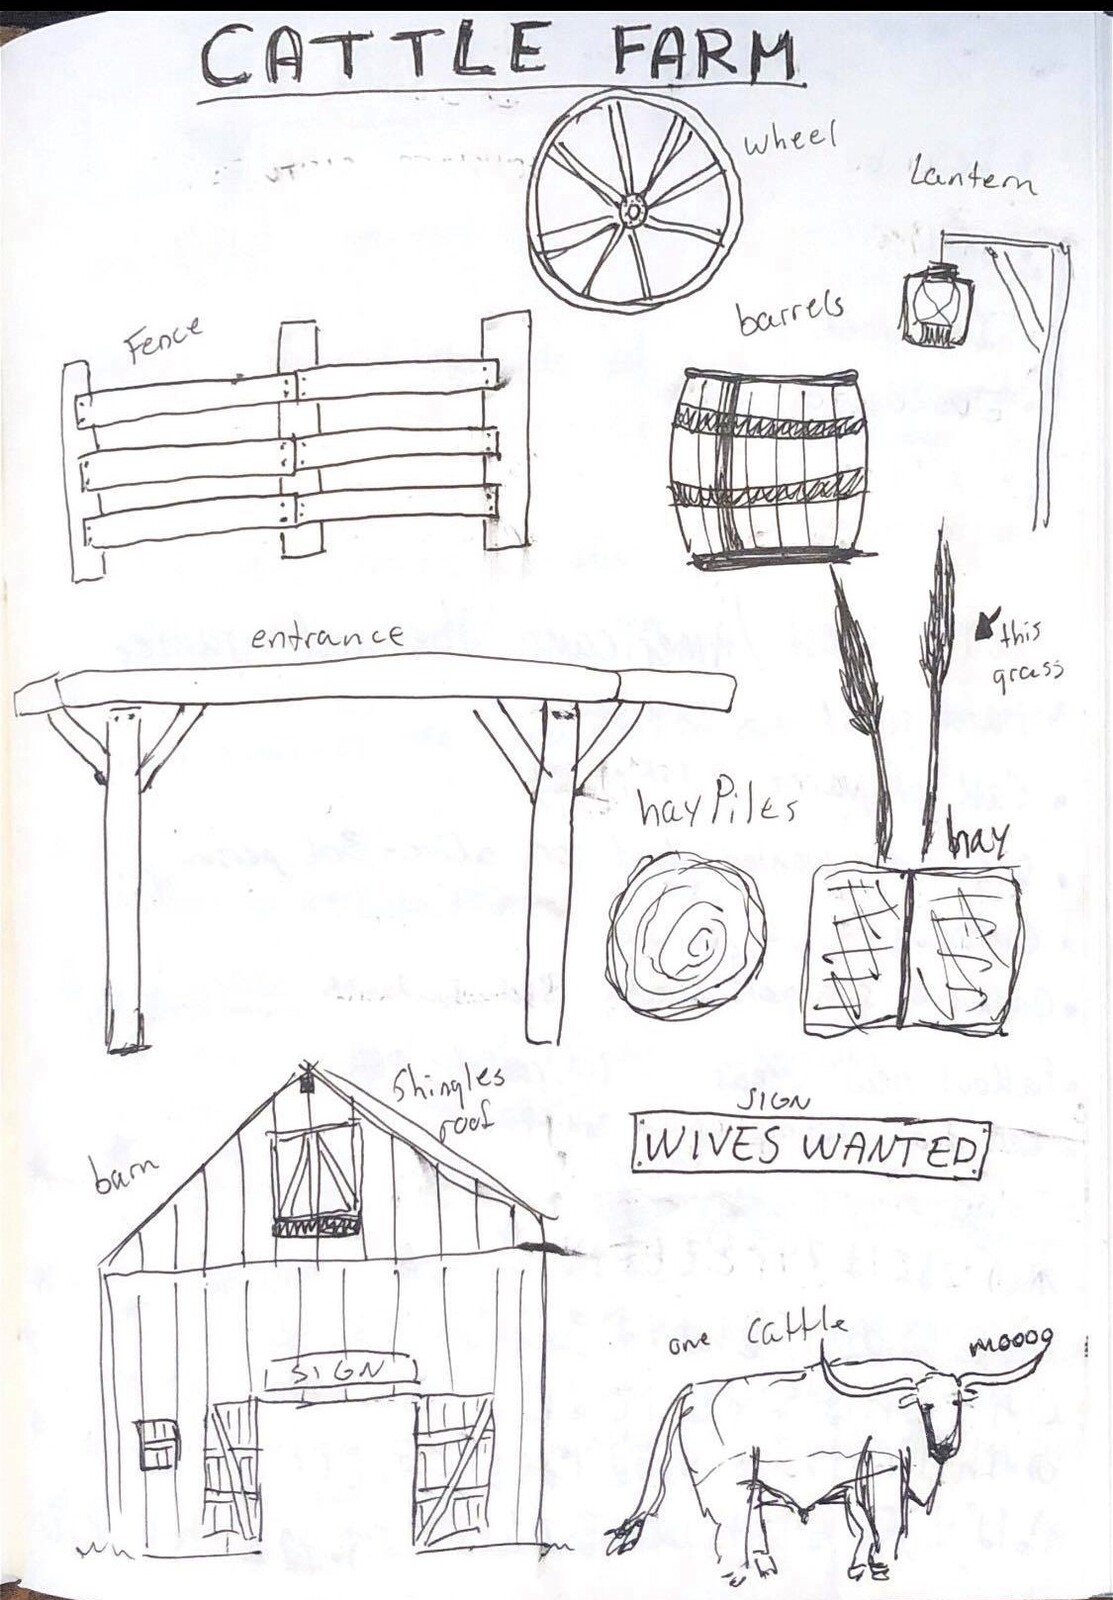 CATTLE FARM
wheel
Lantern
Fence
barrels
entrance
this
grass
hay Piles
hay
Shingles
roof
barn
SIGN
WIVES WANTED
one cattle
moooo
SIGN